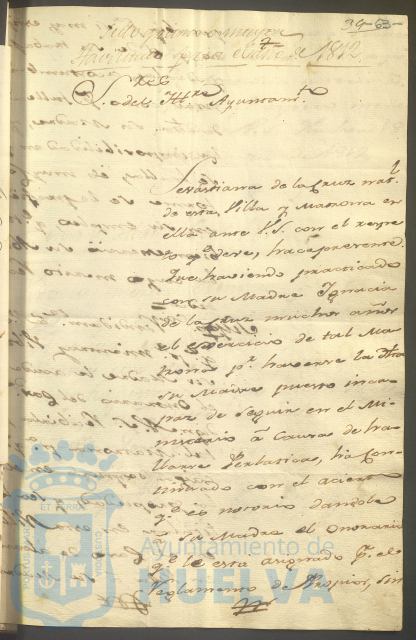 34-63-
Sello quarto mayor
Habilitado para el año de 1812.
S.res del Itt.re Ayuntam.to
Sevastiana de la Cruz nat.l
de esta Villa y Matrona en
ella ante V.S. con el respe
to q.e deve, hace presente:
Que haviendo practicado
con su Madre Ignacia
de la Cruz muchos años
el exercicio de tal Ma
trona p.r haverse la dha
su Madre puesto inca
paz de seguir en el Mi
nisterio à causa de ha
llarse Perlatica, ha con
tinuado con el acierto
q.e es notorio dandole
à su Madre el onorario
q.e le esta asignado p.r el
Reglamento de Propios, sin
PORTUS MARIS
ET TERRÆ
CUSTODIA
Ayuntamiento de
HUELVA